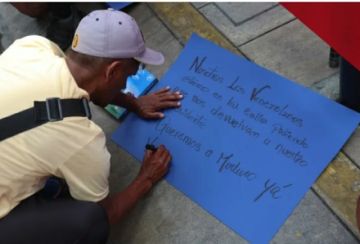 Nosotros Los Venezolanos
estamos en las calles pidiendo
que nos devuelvan a nuestro
Presidente
Queremos a Maduro Ya